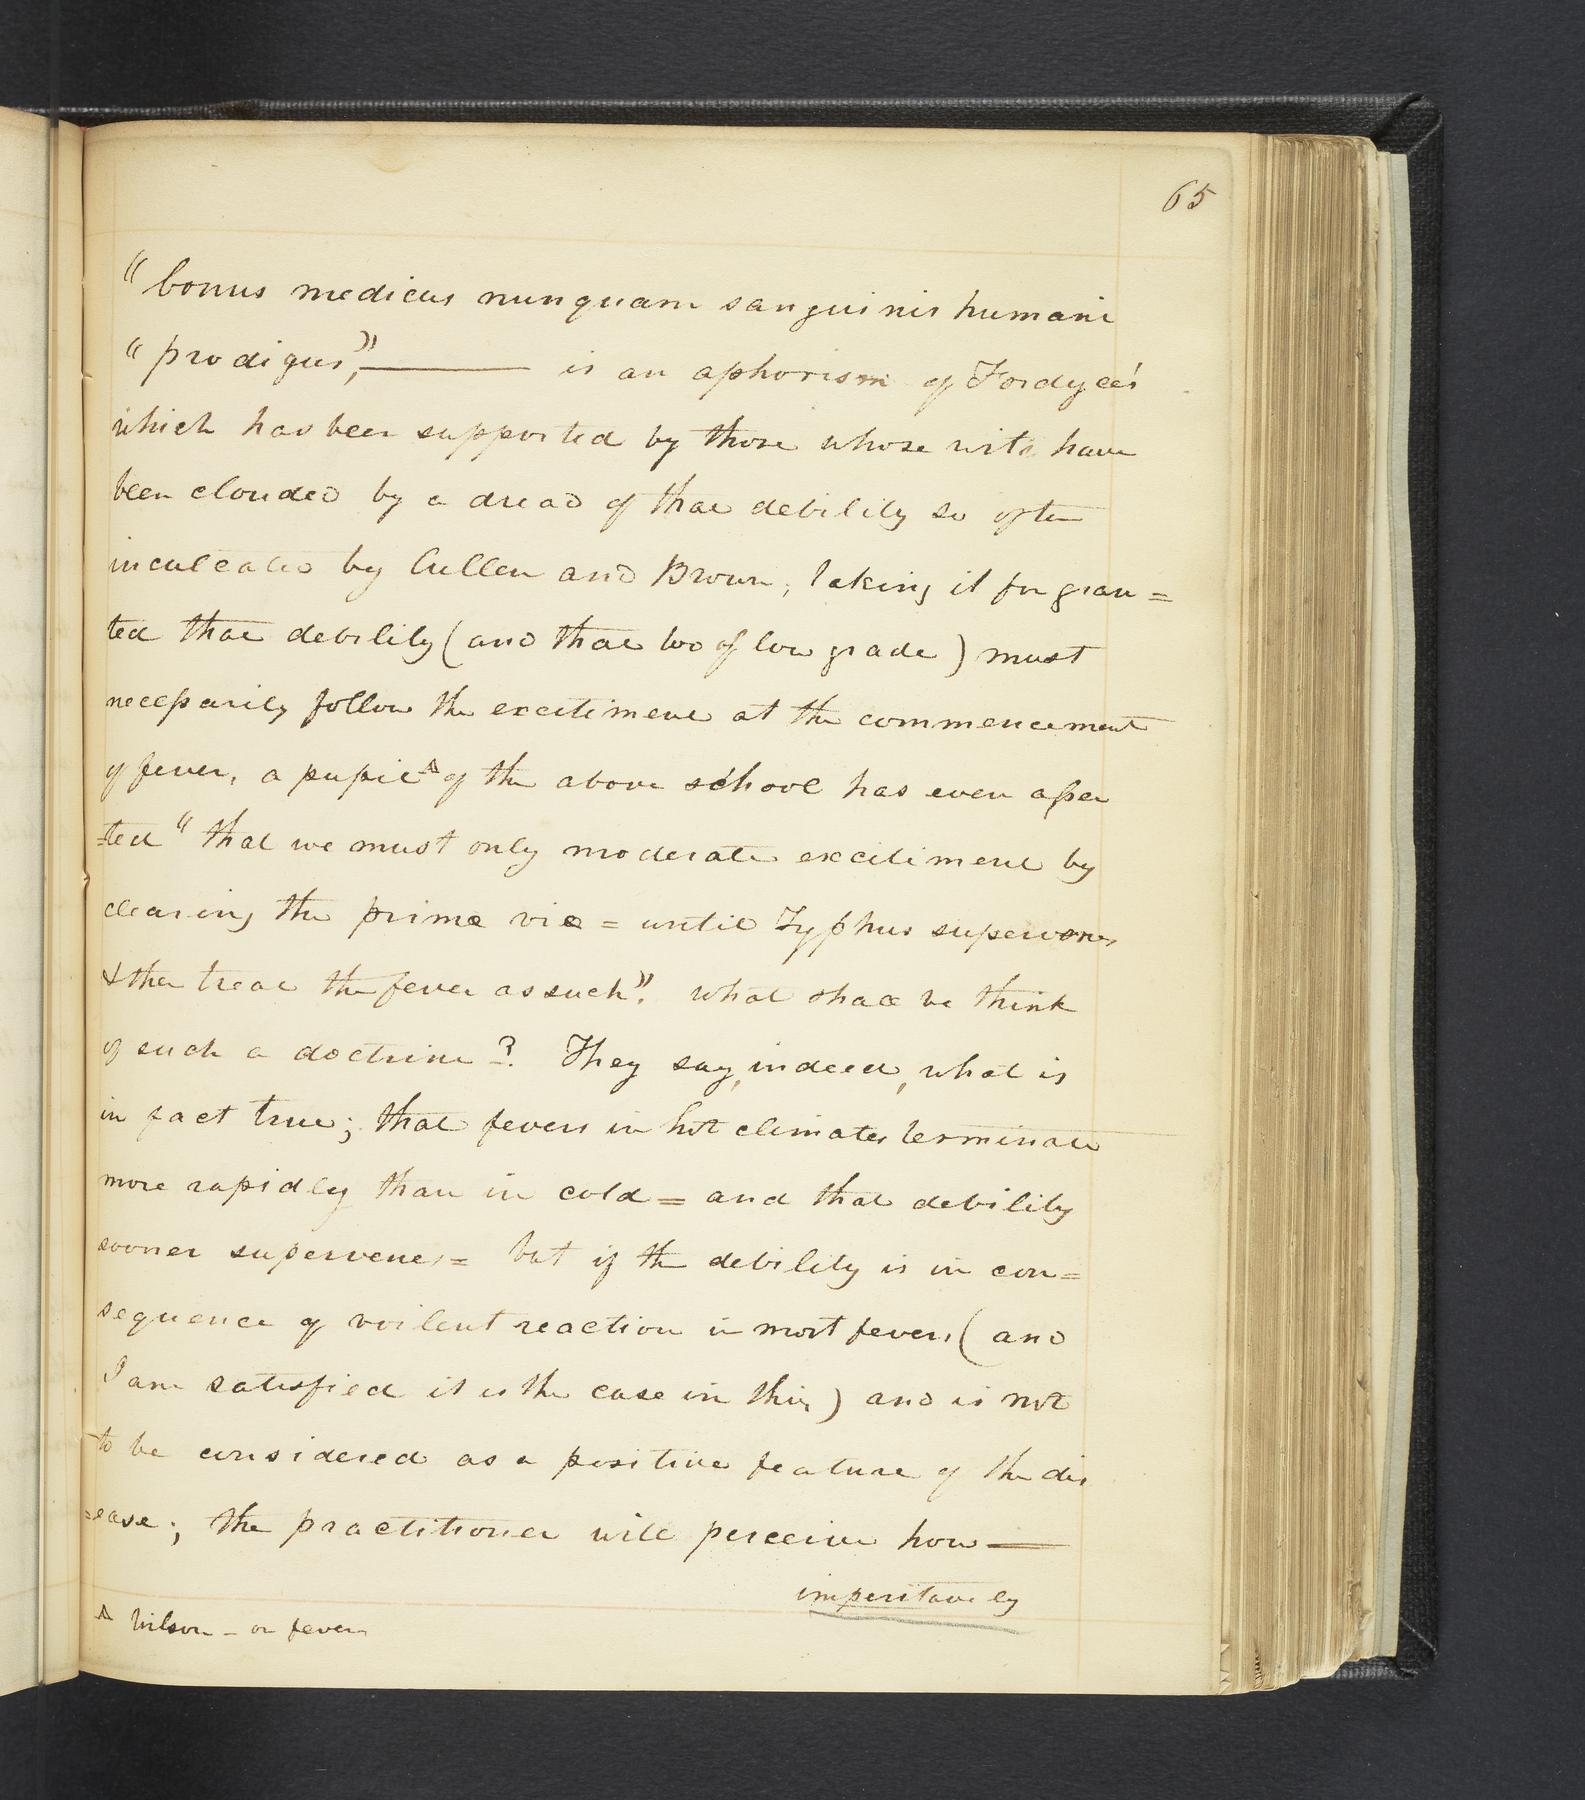 65
"bonus medicus nunquam sanguinis humani
"prodigus," —— is an aphorism of Fordyce's
which has been supported by those whose wits have
been clouded by a dread of that debility so often
inculcated by Cullen and Brown, taking it for gran=
ted that debility (and that too of low grade) must
necessarily follow the excitiment at the commencement
of fever, a pupil ∆ of the above school has even asser
=ted "that we must only moderate excitiment by
clearing the primæ viæ = until Typhus supervenes
& then treat the fever as such". what shall we think
of such a doctrine? They say, indeed, what is
in fact true; that fevers in hot climates terminate
more rapidly than in cold = and that debility
sooner supervenes = but if the debility is in con=
sequence of voilent reaction in most fevers (and
I am satisfied it is the case in this) and is not
to be considered as a positive feature of the dis
=ease; the practitioner will perceive how —
imperitavely
∆ Wilson - on fevers